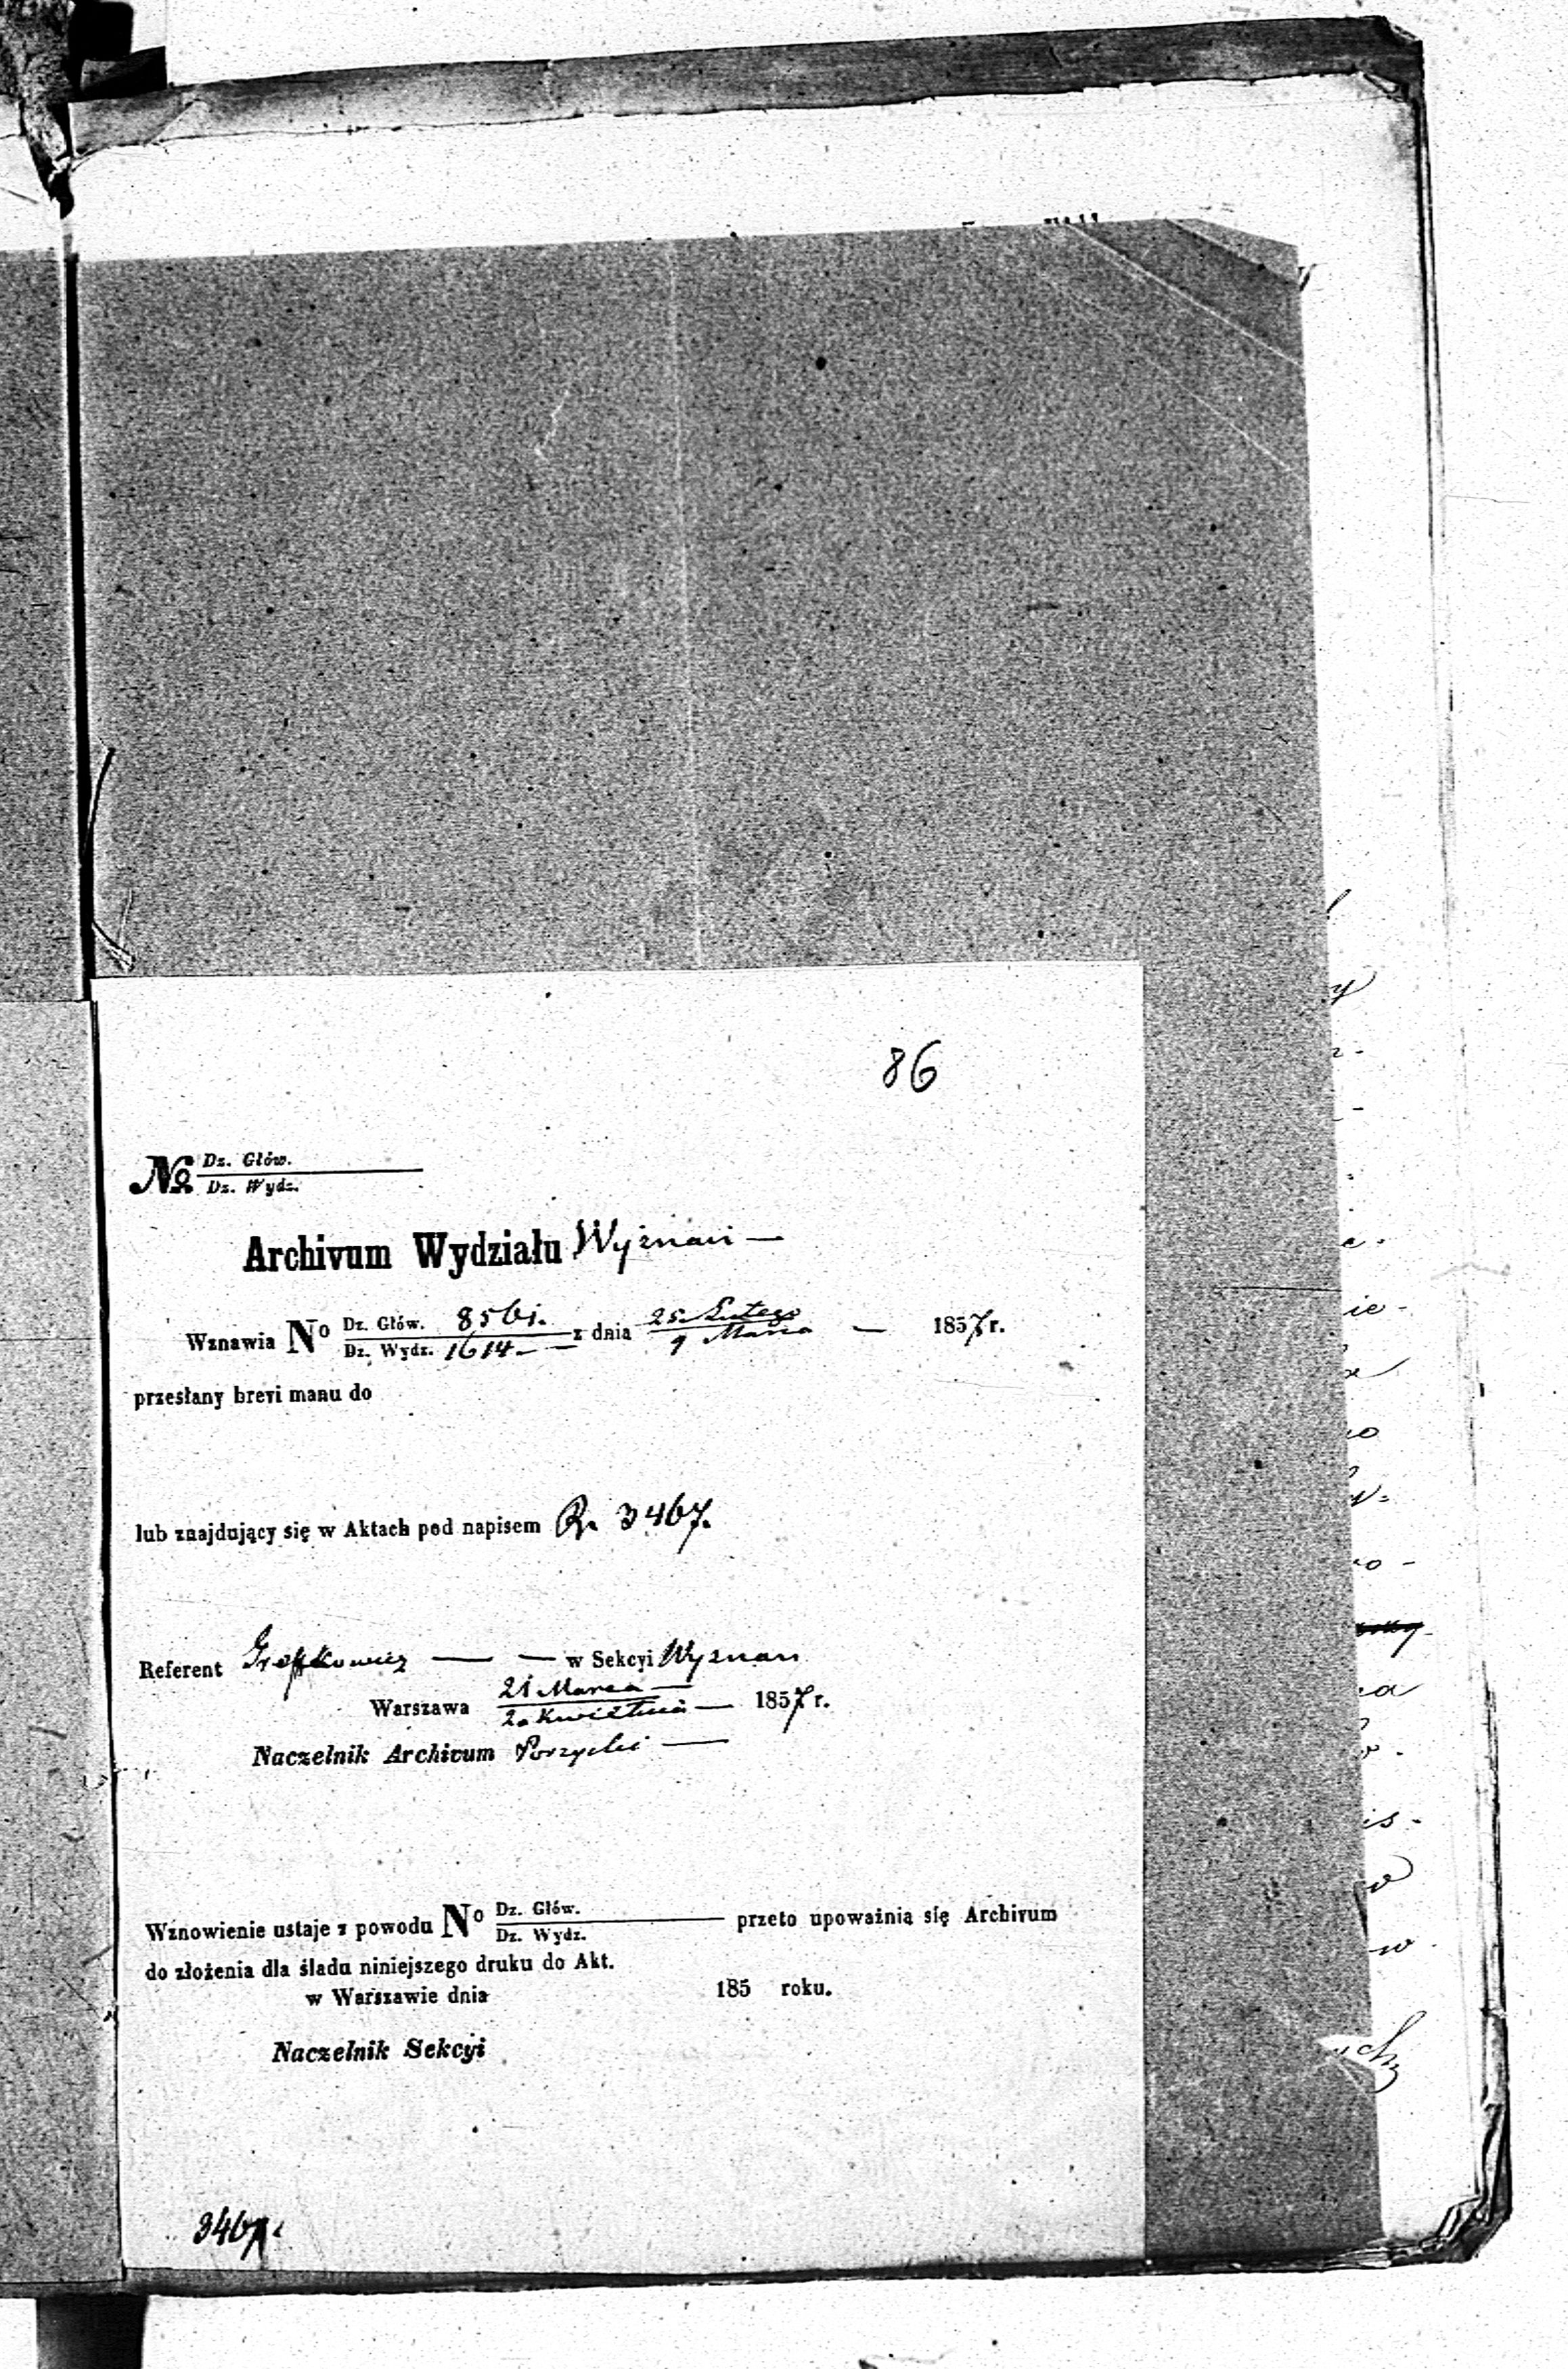 86
№ Dz. Głów.
Dz. Wydz.
Archivum Wydziału Wyznań —
Wznawia No Dz. Głów. 8561. z dnia 25 Lutego — 1857 r.
Dz. Wydz. 1614 — 9 Marca
przesłany brevi manu do
lub znajdujący się w Aktach pod napisem R. 3467.
Referent — — w Sekcyi Wyznań
Warszawa 21 Marca — 1857 r.
2. Kwietnia —
Naczelnik Archivum —
Wznowienie ustaje z powodu No Dz. Głów. przeto upoważnia się Archivum
Dz. Wydz.
do złożenia dla śladu niniejszego druku do Akt.
w Warszawie dnia 185 roku.
Naczelnik Sekcyi
3467.